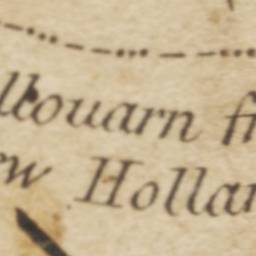 llouarn fr
ew Hollan